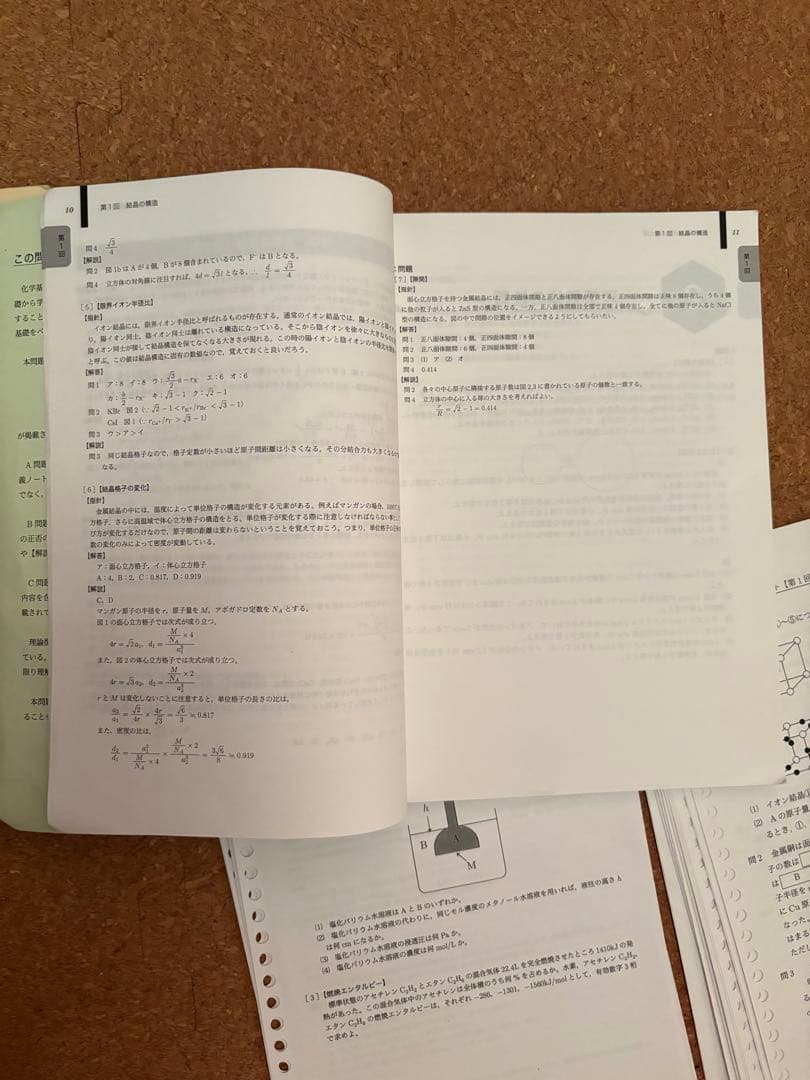 この問
化学基
礎から学
すること
基礎をベ
本問題
が掲載さ
A 問題
義ノート
でなく、
B 問題
の正否の
や【解説
C 問題
内容を含
載されて
理論化
ている。
限り理解
本問題
ること
10
第1回 結晶の構造
第1回
問4 √3/4
【解説】
問2 図1bはAが4個,Bが8個含まれているので,F⁻はBとなる。
問4 立方体の対角線に注目すれば,4d=√3lとなる。∴ d/l=√3/4
[5]【限界イオン半径比】
【指針】
イオン結晶には,限界イオン半径比と呼ばれるものが存在する。通常のイオン結晶では,陽イオンと陰イ
り,陽イオン同士,陰イオン同士は離れている構造になっている。そこから陰イオンを徐々に大きな
陰イオン同士が接して結晶構造を保てなくなる大きさが現れる。この時の陽イオンと陰イオンの半径比を
と呼ぶ。この値は結晶構造に固有の数値なので,覚えておくと良いだろう。
【解答】
問1 ア:8 イ:8 ウ:√3/2 a−rX エ:6 オ:6
カ:b/2−rX キ:√3−1 ク:√2−1
問2 KBr 図2(∵√2−1<rK⁺/rBr⁻<√3−1)
CsI 図1(∵rCs⁺/rI⁻>√3−1)
問3 ウ>ア>イ
【解説】
問3 同じ結晶格子なので,格子定数が小さいほど原子間距離は小さくなる。その分結合力も大きくなる
なる。
[6]【結晶格子の変化】
【指針】
金属結晶の中には,温度によって単位格子の構造が変化する元素がある。例えばマンガンの場合,
方格子,さらに高温域で体心立方格子の構造をとる。単位格子が変化する際に注意しなければならない事
び方が変化するだけなので,原子間の距離は変わらないということを覚えておこう。つまり,単位格子の
数の変化のみによって密度が変動している。
【解答】
ア:面心立方格子,イ:体心立方格子
A:4,B:2,C:0.817,D:0.919
【解説】
C,D
マンガン原子の半径をr,原子量をM,アボガドロ定数をNAとする。
図1の面心立方格子では次式が成り立つ。
4r=√2a₁, d₁=(M/NA×4)/a₁³
また,図2の体心立方格子では次式が成り立つ。
4r=√3a₂, d₂=(M/NA×2)/a₂³
rとMは変化しないことに注意すると,単位格子の長さの比は,
a₂/a₁=√2/4r×4r/√3=√6/3≒0.817
また,密度の比は,
d₂/d₁=a₁³/(M/NA×4)×(M/NA×2)/a₂³=3√6/8≒0.919
第1回 結晶の構造
11
第1回
C問題
[7]【隙間】
【指針】
面心立方格子を持つ金属結晶には,正四面体隙間と正八面体隙間が存在する。正四面体隙間は正味8個存在し,うち4個
に他の粒子が入るとZnS型の構造になる。一方,正八面体隙間は全部で正味4個存在し,全てに他の原子が入るとNaCl
型の構造になる。図の中で隙間の位置をイメージできるようにしてもらいたい。
【解答】
問1 正八面体隙間:4個,正四面体隙間:8個
問2 正八面体隙間:6個,正四面体隙間:4個
問3 (1) ア (2) オ
問4 0.414
【解説】
問2 各々の中心原子に隣接する原子数は図2,3に書かれている原子の個数と一致する。
問4 立方体の中心に入る球の大きさを考えればよい。
r/R=√2−1=0.414
h
B
A
M
(1) 塩化バリウム水溶液はAとBのいずれか。
(2) 塩化バリウム水溶液の代わりに,同じモル濃度のメタノール水溶液を用いれば,液柱の高さh
は何cmになるか。
(3) 塩化バリウム水溶液の浸透圧は何Paか。
(4) 塩化バリウム水溶液の濃度は何mol/Lか。
[3]【燃焼エンタルピー】
標準状態のアセチレンC₂H₂とエタンC₂H₆の混合気体22.4Lを完全燃焼させたところ1410kJの発
熱があった。この混合気体中のアセチレンは全体積のうち何%を占めるか。水素,アセチレンC₂H₂,
エタンC₂H₆の燃焼エンタルピーは,それぞれ−286,−1301,−1560kJ/molとして,有効数字3桁
で求めよ。
【第1回
〜⑤につ
(1) イオン結晶①
(2) Aの原子量
るとき,①,
問2 金属銅は面
子の数は
は B
子半径を
にCu原
なった。
はまる
ただし
問3